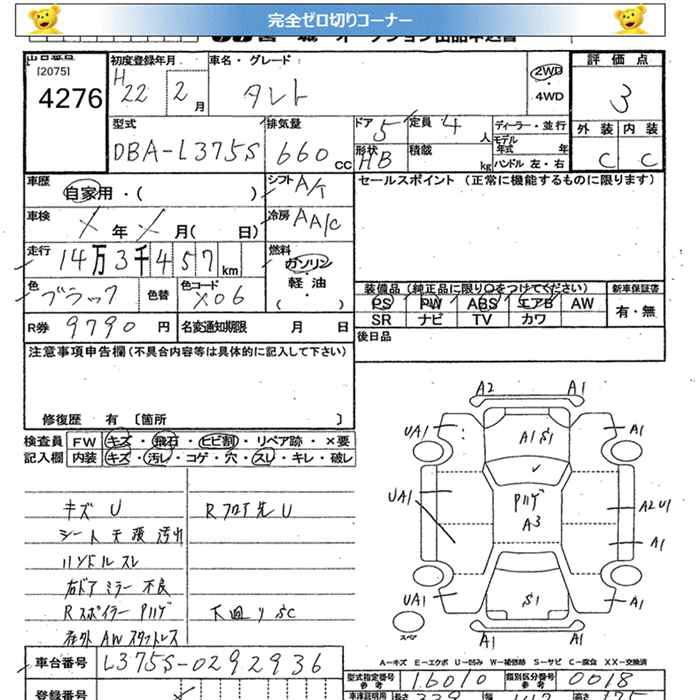 完全ゼロ切りコーナー
[2075]
4276
初度登録年月
H 22 2 月
車名・グレード
タント
2WD
・
4WD
評価点
3
外装 内装
C C
型式
DBA-L375S
排気量
660 CC
ドア 5
形状 HB
定員 4 人
積載 kg
ディーラー・並行
モデル年式 年
ハンドル 左・右
車歴
自家用・( )
シフト A/T
セールスポイント (正常に機能するものに限ります)
車検
年 月( 日)
冷房 AA/C
走行
14万3千457km
燃料
ガソリン
・
軽油
・
( )
色
ブラック
色替
色コード
X06
装備品(純正品に限り〇をつけてください)
PS PW ABS エアB AW
SR ナビ TV カワ
新車保証書
有・無
R券 9790 円
名変通知期限 月 日
後日品
注意事項申告欄(不具合内容等は具体的に記入して下さい)
修復歴 有 〔箇所 〕
検査員 FW キズ・飛石・ヒビ割・リペア跡・×要
記入欄 内装 キズ・汚レ・コゲ・穴・スレ・キレ・破レ
キズ U
シート天張汚れ
ハンドルスレ
右ドアミラー不良
Rスポイラー Pハゲ
Rフロア先 U
下回りSC
A2 A1
UA1 A1S1 A1
UA1 Pハゲ A3 A2U1
A1
UA1 S1 A1
A1 A1
スペア
A-キズ E-エクボ U-凹み W-補修跡 S-サビ C-腐食 XX-交換済
車台番号 L375S-0292936
型式指定番号 参考 16010
類別区分番号 参考 0018
登録番号